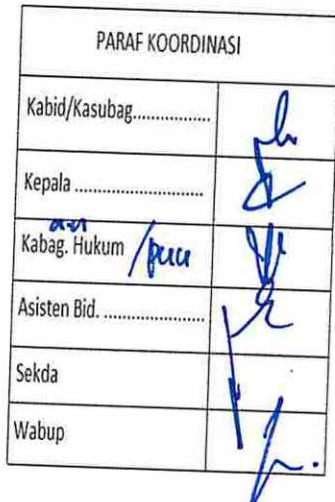 PARAF KOORDINASI
Kabid/Kasubag.................
Kepala ....................
an
Kabag. Hukum
Asisten Bid. ....................
Sekda
Wabup